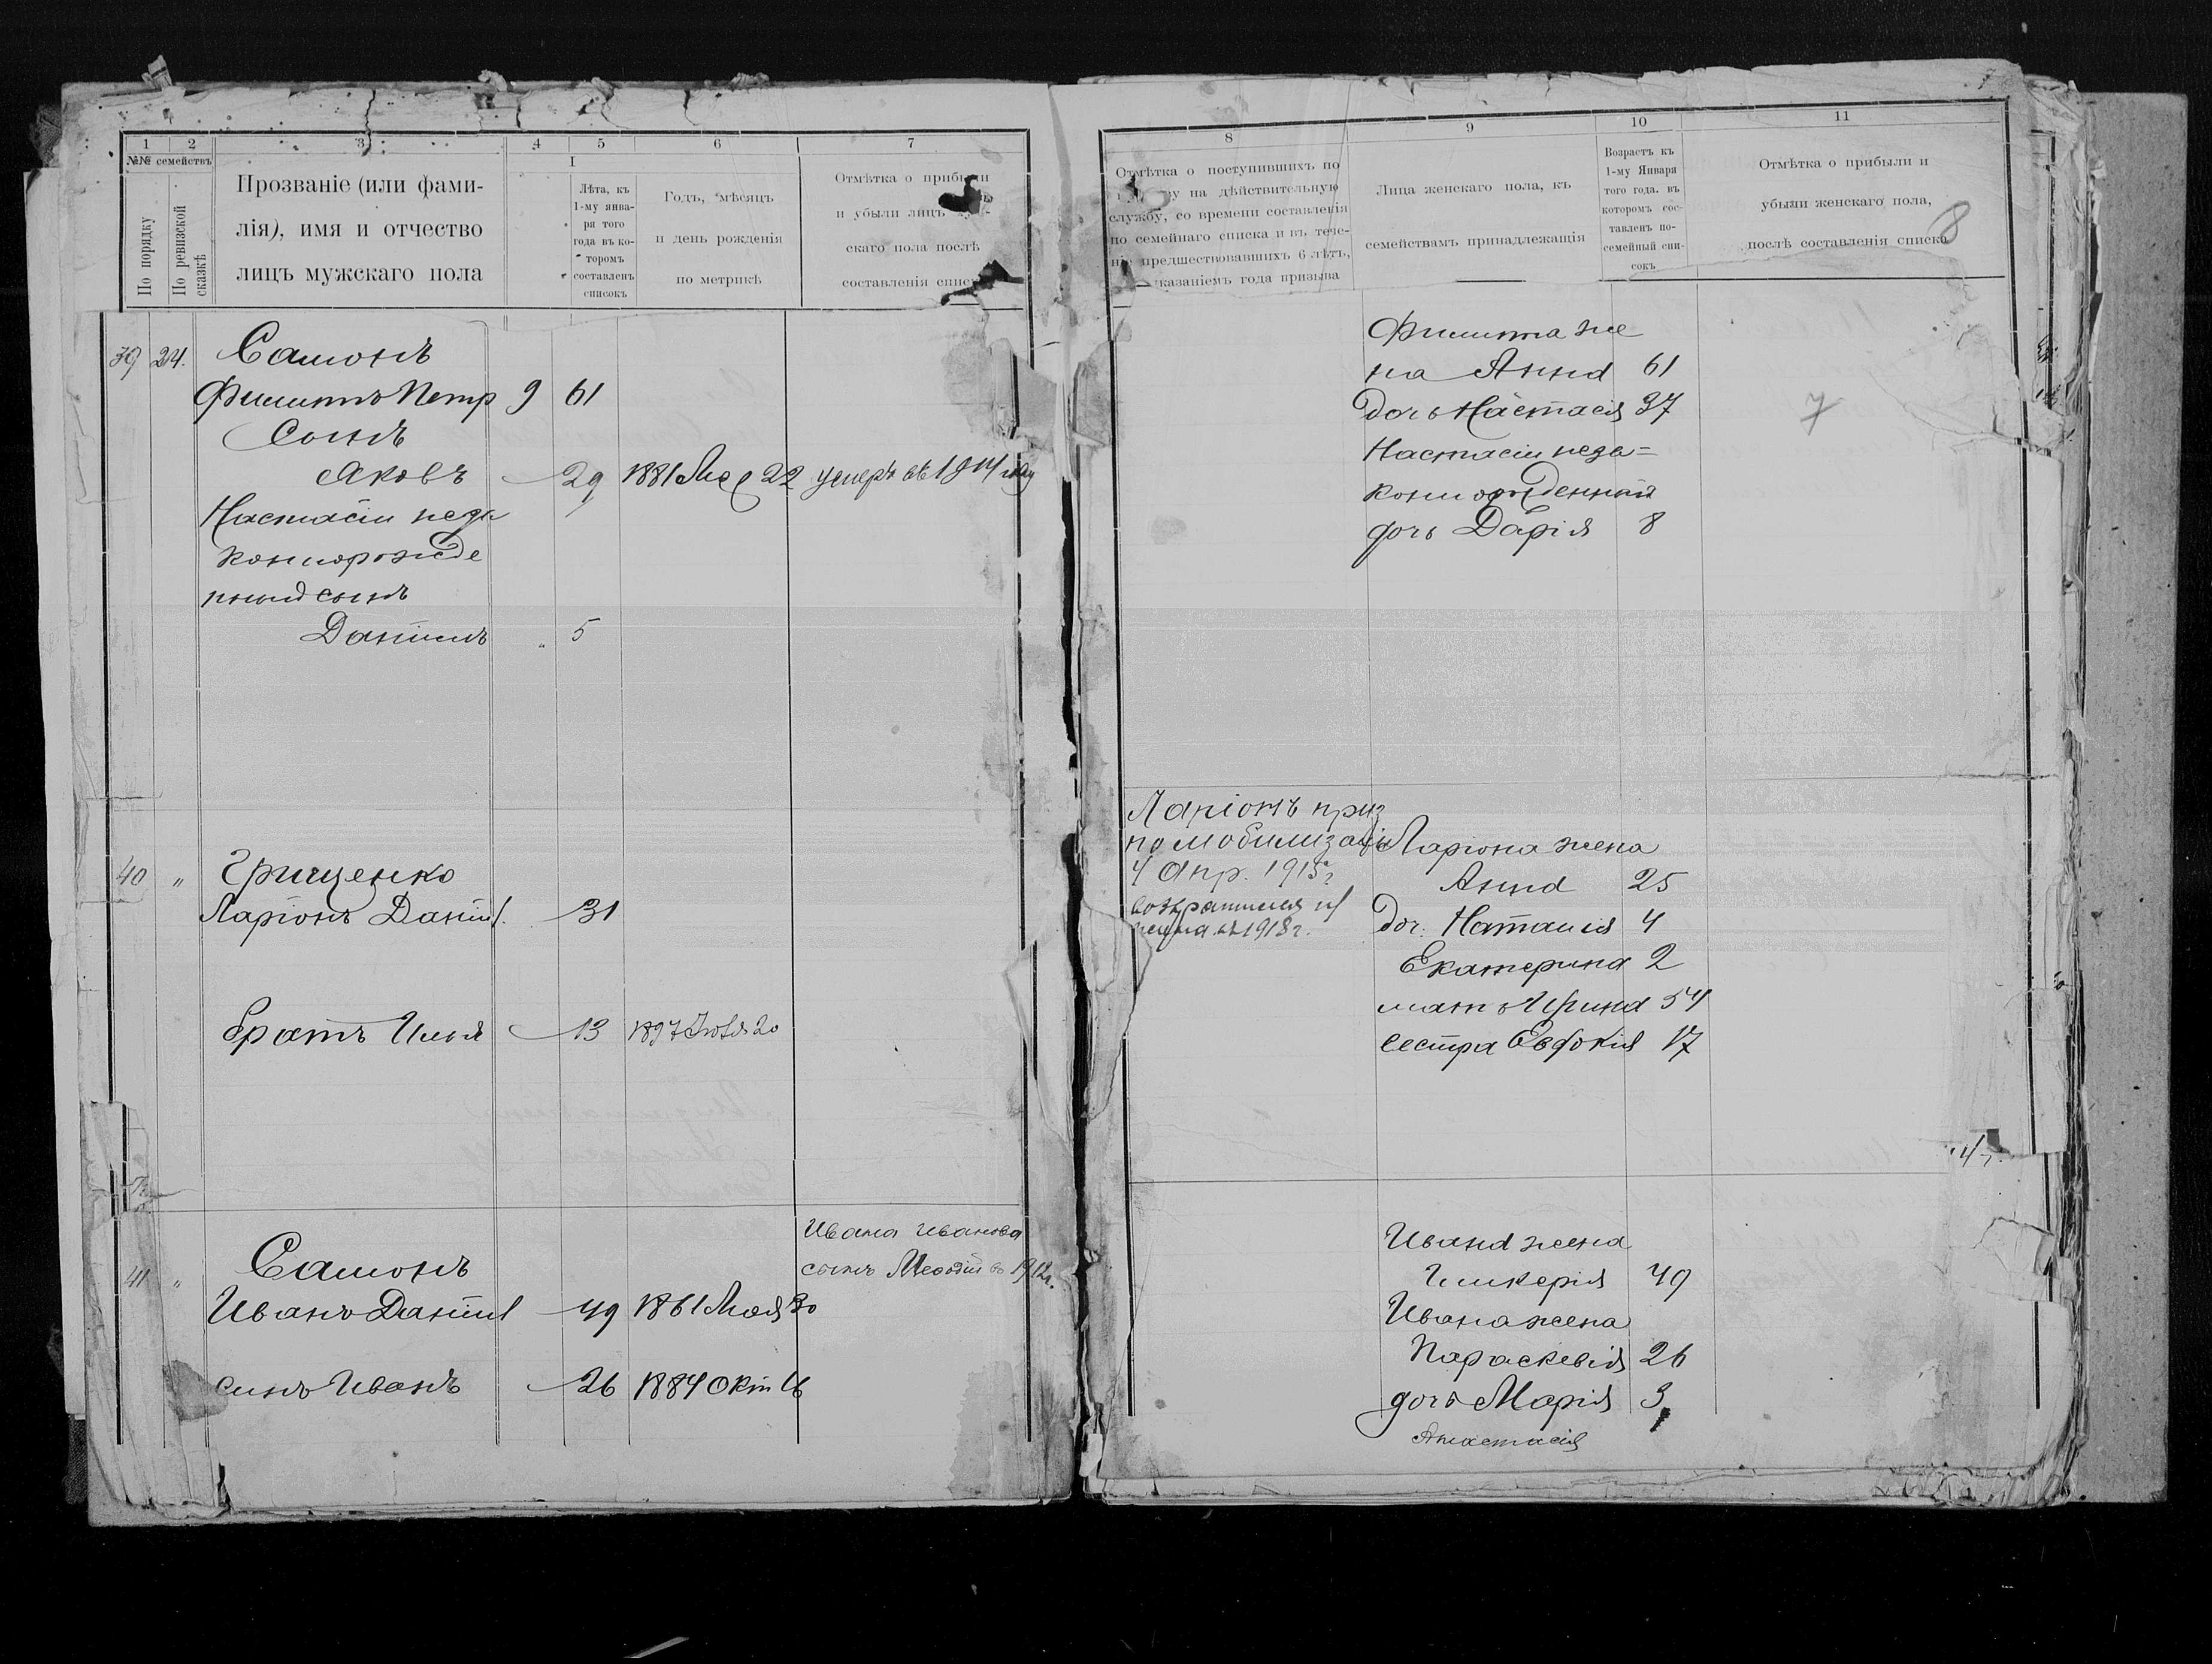 1 2 3 4 5 6 7
№№ семействъ
По порядку
По ревизской сказкѣ
Прозваніе (или фами-
лія), имя и отчество
лицъ мужскаго пола
I
Лѣта, къ
1-му янва-
ря того
года въ ко-
торомъ
составленъ
списокъ
Годъ, мѣсяцъ
и день рожденія
по метрикѣ
Отмѣтка о прибыли
и убыли лицъ
скаго пола послѣ
составленія
39 24. Самонъ
Филиппъ Петр 9 61
Сынъ
Яковъ 29 1881 22 умеръ въ 1914 году
Настасіи неза
коннорожде
ный сынъ
Даніилъ 5
40 " Грищенко
Ларіонъ Даніил. 31
Братъ Илья 13 1897 Іюля 20
Ивана Иванова
сынъ Меѳодій въ 1912г.
41 " Самонъ
Иванъ Даніил 49 1861 Мая 30
сынъ Иванъ 26 1884 Окт 16
8 9 10 11
Отмѣтка о поступившихъ по
на дѣйствительную
службу, со времени составленія
по семейнаго списка и въ тече-
предшествовавшихъ 6 лѣтъ,
указаніемъ года призыва
Лица женскаго пола, къ
семействамъ принадлежащія
Возрастъ къ
1-му Января
того года, въ
которомъ сос-
тавленъ по-
семейный спи-
сокъ
Отмѣтка о прибыли и
убыли женскаго пола,
послѣ составленія списка
8
Филиппа же
на Анна 61
дочь Настасія 37
7
Настасіи неза=
коннорожденная
дочь Дарія 8
Ларіонъ приз
по мобилизаціи
4 Апр. 1915г
возвратился из
плена въ 1918г.
Ларіона жена
Анна 25
доч. Наталія 4
Екатерина 2
мать Ирина 54
сестра Евдокия 17
Ивана жена
Гликерія 49
Ивана жена
Параскевія 26
дочь Марія 3
Анастасія